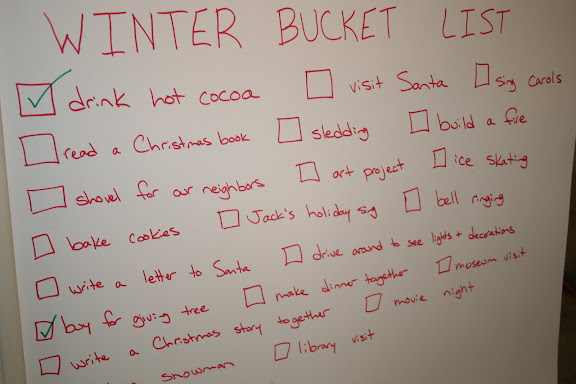 WINTER BUCKET LIST
drink hot cocoa visit Santa sing carols
read a Christmas book sledding build a fire
shovel for our neighbors art project ice skating
bake cookies Jack's holiday sing bell ringing
write a letter to Santa drive around to see lights + decorations
buy for giving tree make dinner together museum visit
write a Christmas story together movie night
snowman library visit